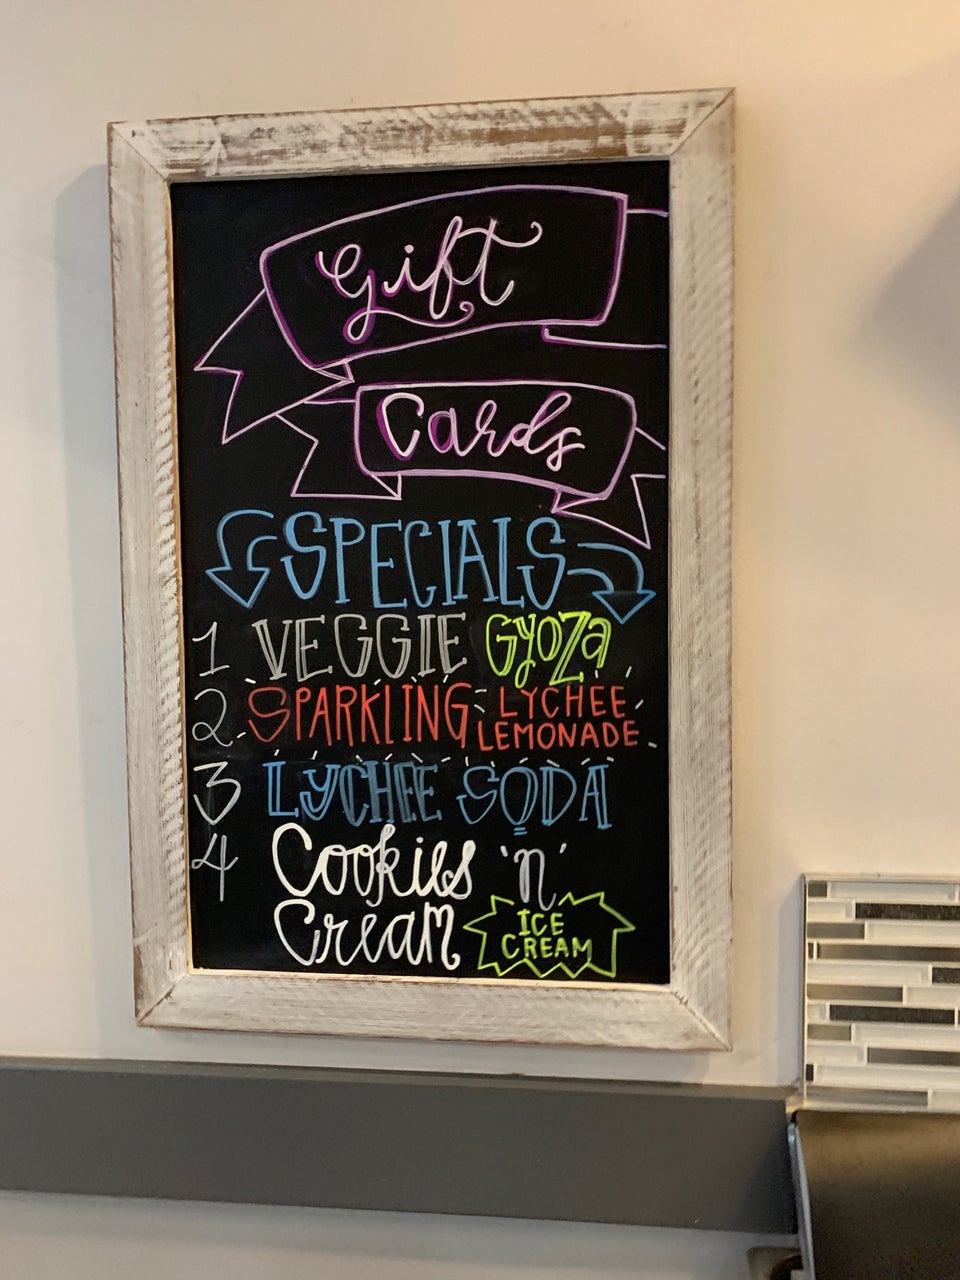 Gift
Cards
SPECIALS
1 VEGGIE GyOZa
2 SPARKLING LYCHEE LEMONADE
3 LyCHEE SODA
4 Cookies 'n'
Cream ICE CREAM